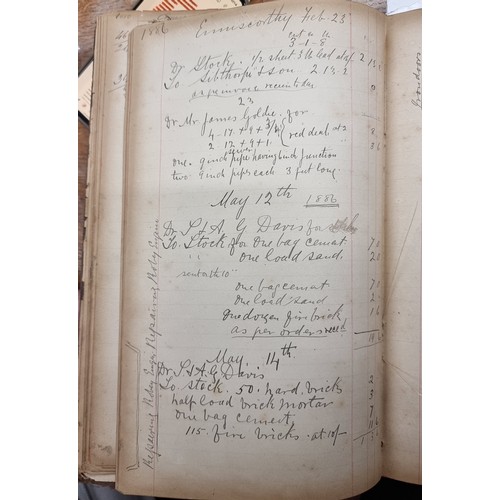 1886 Enniscorthy Feb 23
3-1-8
Dr Stock. 1/2 sheet 3 lb lead at
To Sibthorp & Son 2 13 2
as per invoice
23
Dr Mr. James Goldie. for
4-17 + 9 + 3/4
2 12 + 9 + 1. red deal at 2
one. 9 inch pipe having 6 inch junction
two 9 inch pipes each 3 feet long
May 12th 1886
Dr S & A G Davis for
To Stock for one bag cement 7
" one load sand 2
one bag cement 7
one load sand 2
one dozen fire brick 1 6
as per orders
May 14th.
Dr S & A. G Davis
To stock. 50. hard. bricks 2
half load brick mortar 3
one bag cement, 7
115. fire bricks. at 10/-
Repairing Roby Engin Repairing Roby Engin